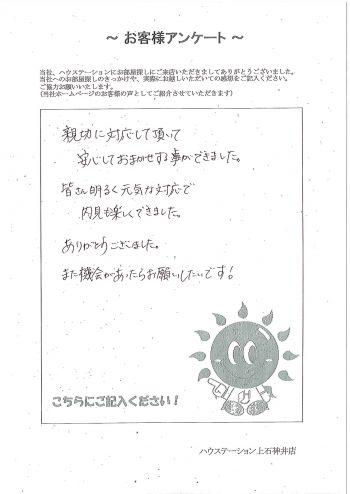 ～ お客様アンケート ～
当社、ハウスステーションにお部屋探しにご来店いただきましてありがとうございました。
当社へのお部屋探しのきっかけや、実際にお越しいただいての感想をご記入ください。
ご協力お願いいたします。
(当社ホームページのお客様の声としてご紹介させていただきます)
親切に対応して頂いて
安心しておまかせする事ができました。
皆さん明るく元気な対応で
内見も楽しくできました。
ありがとうございました。
また機会があったらお願いしたいです!
こちらにご記入ください!
ハウスステーション上石神井店